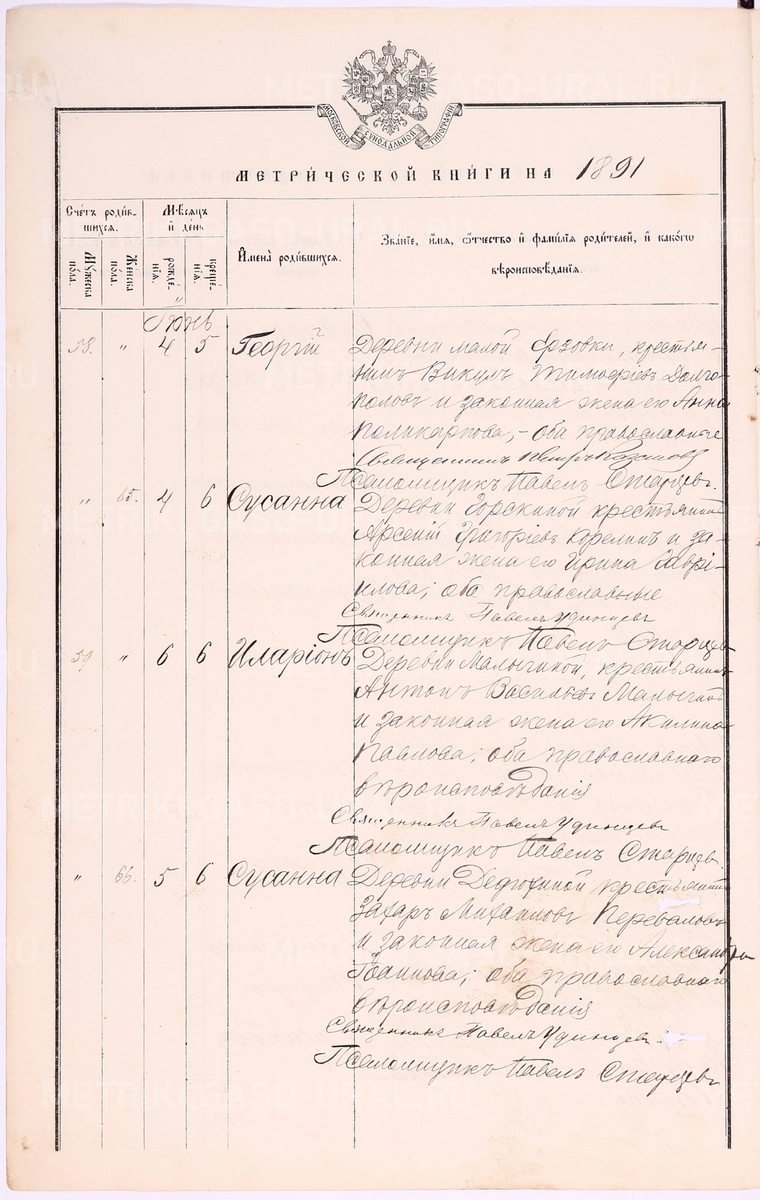 МОСКОВСКОЙ СѴНОДАЛЬНОЙ ТИПОГРАФІИ
МЕТРИ́ЧЕСКОЙ КНИ́ГИ НА 1891
Сче́тъ роди́в-
шихся.
Мѣ́сяцъ
и́ де́нь
Имена̀ роди́вшихся.
Зва́нїе, и́мя, ѻ́тчество и́ фами́лїя роди́телей, и́ како́гѡ
вѣроисповѣ́данїя.
Му́жеска по́ла.
Же́нска по́ла.
рожде́нїя.
креще́нїя.
Іюнь
58. " 4 5 Георгій 2 Деревни малой Ерзовки, крестья-
нинъ Викулъ Тимофѣевъ Долго-
половъ и законная жена его Анна
Поликарпова, – оба православные
Священникъ Петръ
Псаломщикъ Павелъ Старцевъ.
" 65. 4 6 Сусанна Деревни Горскиной крестьянинъ
Арсеній Григоріевъ Корелинъ и за-
конная жена его Ирина Гаврі-
илова; оба православные
Священникъ Павелъ Удинцевъ
Псаломщикъ Павелъ Старцевъ
59. " 6 6 Иларіонъ Деревни Малыгиной, крестьянинъ
Антонъ Васильевъ Малыгинъ
и законная жена его Акилина
Павлова; оба православнаго
вѣроисповѣданія
Священникъ Павелъ Удинцевъ
Псаломщикъ Павелъ Старцевъ
" 66. 5 6 Сусанна Деревни Дедюхиной крестьянинъ
Захаръ Михаиловъ Переваловъ
и законная жена его Александра
Іоаннова; оба православнаго
вѣроисповѣданія
Священникъ Павелъ Удинцевъ
Псаломщикъ Павелъ Старцевъ